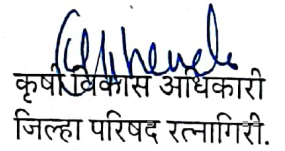 कृषी विकास अधिकारी
जिल्हा परिषद रत्नागिरी.